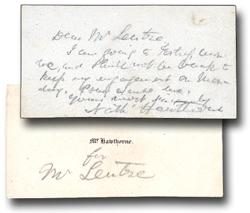 Dear Mr Leutze,
I am going to Fortress Mon-
roe, and shall not be back to
keep my engagement on Mon-
day. Please excuse me.
Yours most
Nath Hawthorne
Mr Hawthorne.
for
Mr Leutze